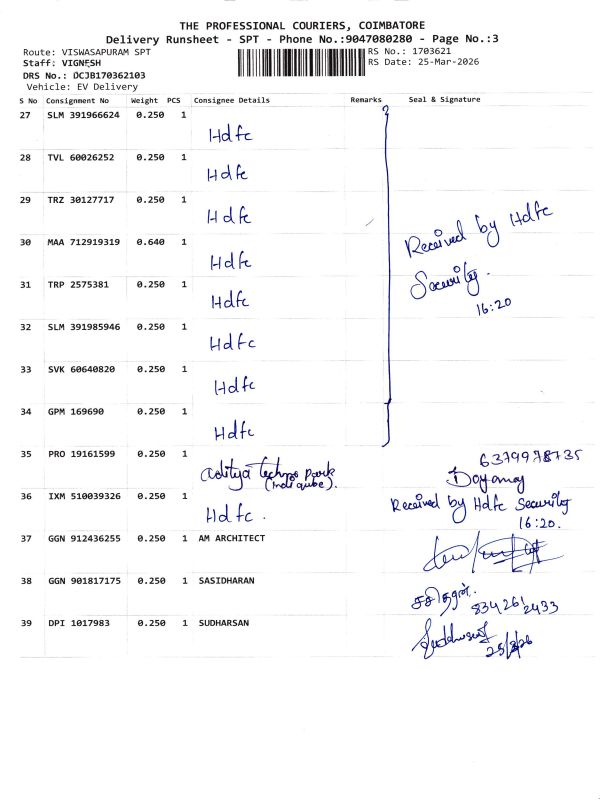 THE PROFESSIONAL COURIERS, COIMBATORE
Delivery Runsheet - SPT - Phone No.:9047080280 - Page No.:3
Route: VISWASAPURAM SPT
RS No.: 1703621
Staff: VIGNESH
RS Date: 25-Mar-2026
DRS No.: DCJB170362103
Vehicle: EV Delivery
S No Consignment No Weight PCS Consignee Details Remarks Seal & Signature
27 SLM 391966624 0.250 1
Hdfc
28 TVL 60026252 0.250 1
Hdfc
29 TRZ 30127717 0.250 1
Hdfc
Received by Hdfc
30 MAA 712919319 0.640 1
Hdfc
Security.
31 TRP 2575381 0.250 1
Hdfc
16:20
32 SLM 391985946 0.250 1
Hdfc
33 SVK 60640820 0.250 1
Hdfc
34 GPM 169690 0.250 1
Hdfc
35 PRO 19161599 0.250 1
6379978735
Aditya Techno Park
(Indiqube).
36 IXM 510039326 0.250 1
Hdfc.
Received by Hdfc Security
16:20.
37 GGN 912436255 0.250 1 AM ARCHITECT
38 GGN 901817175 0.250 1 SASIDHARAN
சசிதரன்.
8342612433
39 DPI 1017983 0.250 1 SUDHARSAN
25/3/26